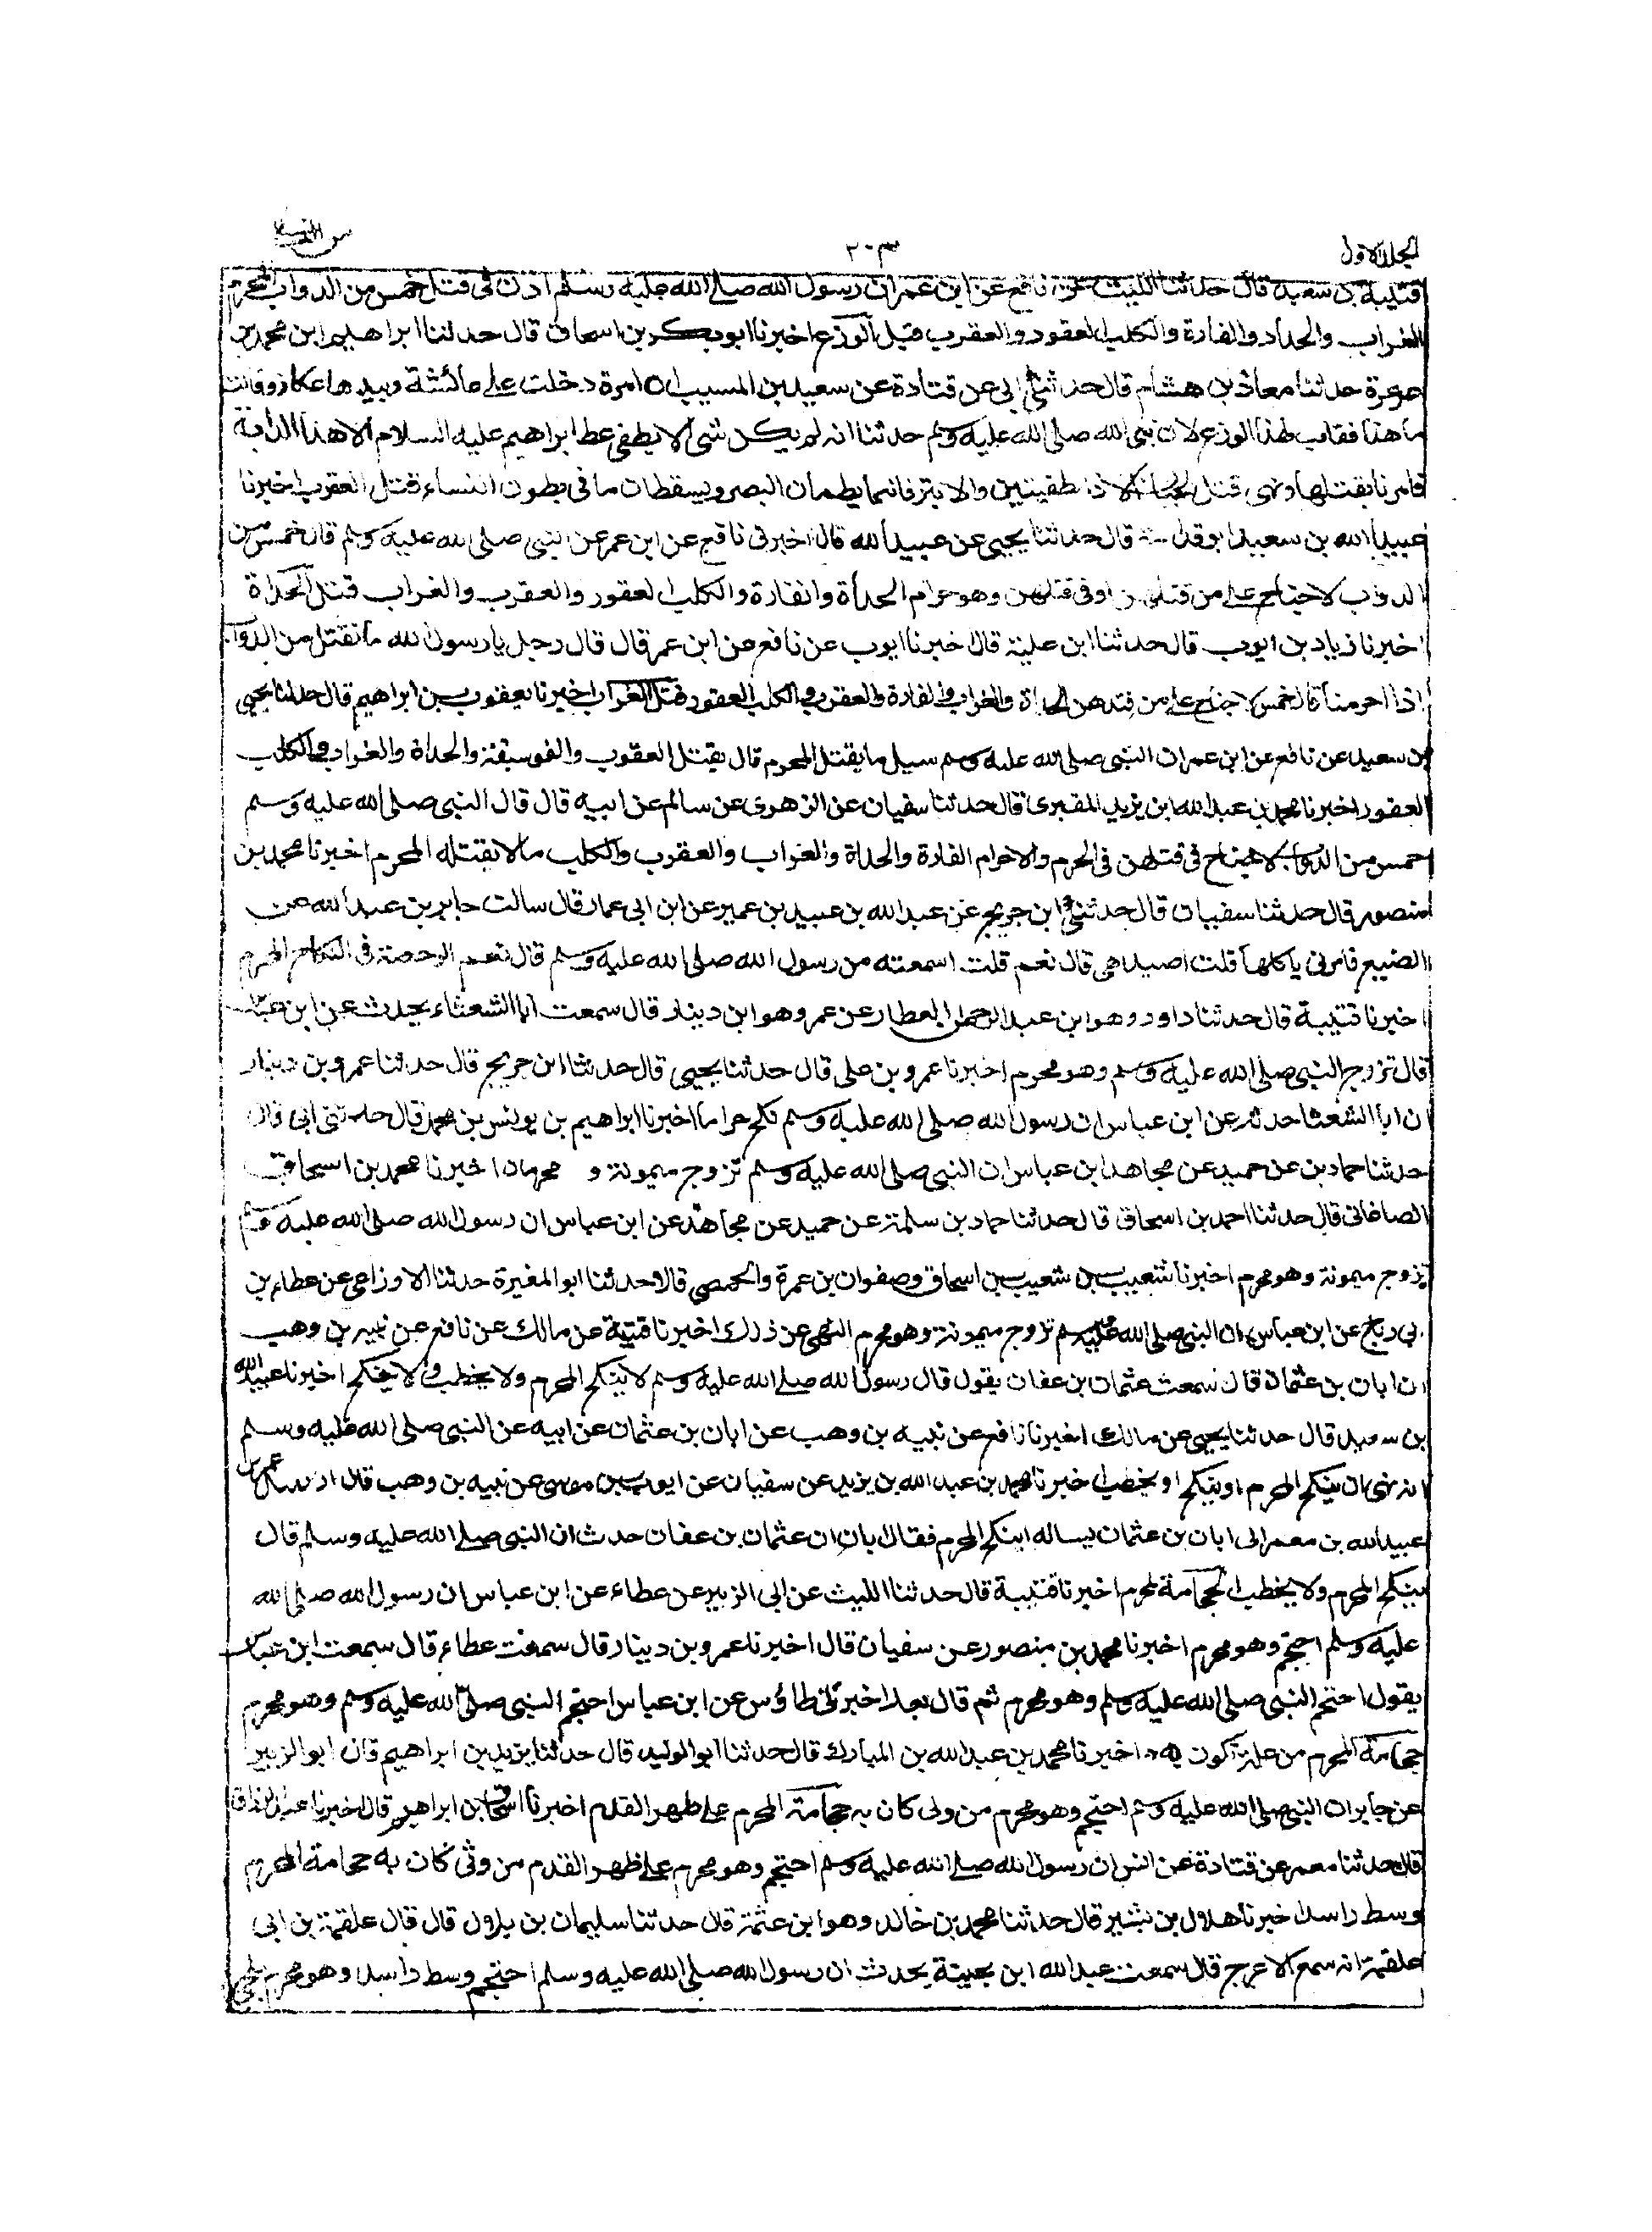 الجلد الاول
٢٠٣
قتيبة بن سعيد قال حدثنا الليث عن نافع عن ابن عمر ان رسول الله صلى الله عليه وسلم اذن فى قتل خمس من الدواب للمحرم
الغراب والحداد والفارة والكلب العقور والعقرب قتل الوزغ اخبرنا ابو بكر بن اسحاق قال حدثنا ابراهيم ابن محمد بن
عرعرة حدثنا معاذ بن هشام قال حدثنى ابى عن قتادة عن سعيد بن المسيب ان امرة دخلت على عائشة وبيدها عكاز وقالت
ما هذا فقالت لهذا الوزغ لان نبى الله صلى الله عليه وسلم حدثنا انه لم يكن شئ الا يطفى على ابراهيم عليه السلام الا هذا الدابة
فامرنا بقتلها ونهى قتل الجنان الا ذا طفيتين والابتر فانهما يطمان البصر ويسقطان ما فى بطون النساء قتل العقرب اخبرنا
عبيد الله بن سعيد ابو قدامة قال حدثنا يحيى عن عبيد الله قال اخبرنى نافع عن ابن عمر عن النبى صلى الله عليه وسلم قال خمس من
الدواب لا جناح على من قتلهن او فى قتلهن وهو حرام الحداة والفارة والكلب العقور والعقرب والغراب قتل الحداة
اخبرنا زياد بن ايوب قال حدثنا ابن علية قال اخبرنا ايوب عن نافع عن ابن عمر قال قال رجل يا رسول الله ما نقتل من الدواب
اذا احرمنا قال خمس لا جناح على من قتلهن الحداة والغراب والفارة والعقرب والكلب العقور قتل الغراب اخبرنا يعقوب بن ابراهيم قال حدثنا يحيى
بن سعيد عن نافع عن ابن عمر ان النبى صلى الله عليه وسلم سيل ما يقتل المحرم قال يقتل العقرب والفوسيقة والحداة والغراب والكلب
العقور اخبرنا محمد بن عبد الله ابن يزيد المقبرى قال حدثنا سفيان عن الزهرى عن سالم عن ابيه قال قال النبى صلى الله عليه وسلم
خمس من الدواب لا جناح فى قتلهن فى الحرم والاحرام الفارة والحداة والغراب والعقرب والكلب مالا يقتله المحرم اخبرنا محمد بن
منصور قال حدثنا سفيان قال حدثنى ابن جريج عن عبد الله بن عبيد بن عمير عن ابن ابى عمار قال سالت جابر بن عبد الله عن
الضبع فامرنى باكلها قلت اصيد هى قال نعم قلت اسمعته من رسول الله صلى الله عليه وسلم قال نعم الرخصة فى النكاح للمحرم
اخبرنا قتيبة قال حدثنا داود وهو ابن عبد الرحمن العطار عن عمر وهو ابن دينار قال سمعت ابا الشعثاء يحدث عن ابن عباس
قال تزوج النبى صلى الله عليه وسلم وهو محرم اخبرنا عمرو بن على قال حدثنا يحيى قال حدثنا ابن جريج قال حدثنا عمرو بن دينار
ان ابا الشعثا حدثه عن ابن عباس ان رسول الله صلى الله عليه وسلم نكح حراما اخبرنا ابراهيم بن يونس بن محمد قال حدثنى ابى قال
حدثنا حماد بن عن حميد عن مجاهد ابن عباس ان النبى صلى الله عليه وسلم تزوج ميمونة و محرمان اخبرنا محمد بن اسحاق
الصاغانى قال حدثنا احمد بن اسحاق قال حدثنا حماد بن سلمة عن حميد عن مجاهد عن ابن عباس ان رسول الله صلى الله عليه وسلم
تزوج ميمونة وهو محرم اخبرنا شعيب بن شعيب بن اسحاق وصفوان بن عمرة والحمصى قالا حدثنا ابو المغيرة حدثنا الاوزاعى عن عطاء بن
ابى رباح عن ابن عباس ان النبى صلى الله عليه وسلم تزوج ميمونة وهو محرم النهى عن ذلك اخبرنا قتيبة عن مالك عن نافع عن نبيه بن وهب
ان ابان بن عثمان قال سمعت عثمان بن عفان يقول قال رسول الله صلى الله عليه وسلم لا ينكح المحرم ولا يخطب ولا ينكح اخبرنا عبيد الله
بن سعيد قال حدثنا يحيى عن مالك اخبرنا نافع عن نبيه بن وهب عن ابان بن عثمان عن ابيه عن النبى صلى الله عليه وسلم
انه نهى ان ينكح المحرم او ينكح او يخطب اخبرنا محمد بن عبد الله بن يزيد عن سفيان عن ايوب بن موسى عن نبيه بن وهب قال ارسل عمر بن
عبيد الله بن معمر الى ابان بن عثمان يساله اينكح المحرم فقال ابان ان عثمان بن عفان حدث ان النبى صلى الله عليه وسلم قال
ينكح المحرم ولا يخطب الحجامة للمحرم اخبرنا قتيبة قال حدثنا الليث عن ابى الزبير عن عطاء عن ابن عباس ان رسول الله صلى الله
عليه وسلم احتجم وهو محرم اخبرنا محمد بن منصور عن سفيان قال اخبرنا عمرو بن دينار قال سمعت عطاء قال سمعت ابن عباس
يقول احتجم النبى صلى الله عليه وسلم وهو محرم ثم قال بعد اخبرنى طاؤس عن ابن عباس احتجم النبى صلى الله عليه وسلم وهو محرم
حجامة المحرم من علة تكون به اخبرنا محمد بن عبد الله بن المبارك قال حدثنا ابو الوليد قال حدثنا يزيد بن ابراهيم قال ابو الزبير
عن جابر ان النبى صلى الله عليه وسلم احتجم وهو محرم من وثى كان به حجامة المحرم على ظهر القدم اخبرنا اسحاق بن ابراهيم قال اخبرنا عبد الرزاق
قال حدثنا معمر عن قتادة عن انس ان رسول الله صلى الله عليه وسلم احتجم وهو محرم على ظهر القدم من وثى كان به حجامة المحرم
وسط راسه اخبرنا هلال بن بشير قال حدثنا محمد بن خالد وهو ابن عثمة قال حدثنا سليمان بن بلال قال قال علقمة بن ابى
علقمة انه سمع الاعرج قال سمعت عبد الله ابن بحينة يحدث ان رسول الله صلى الله عليه وسلم احتجم وسط راسه وهو محرم